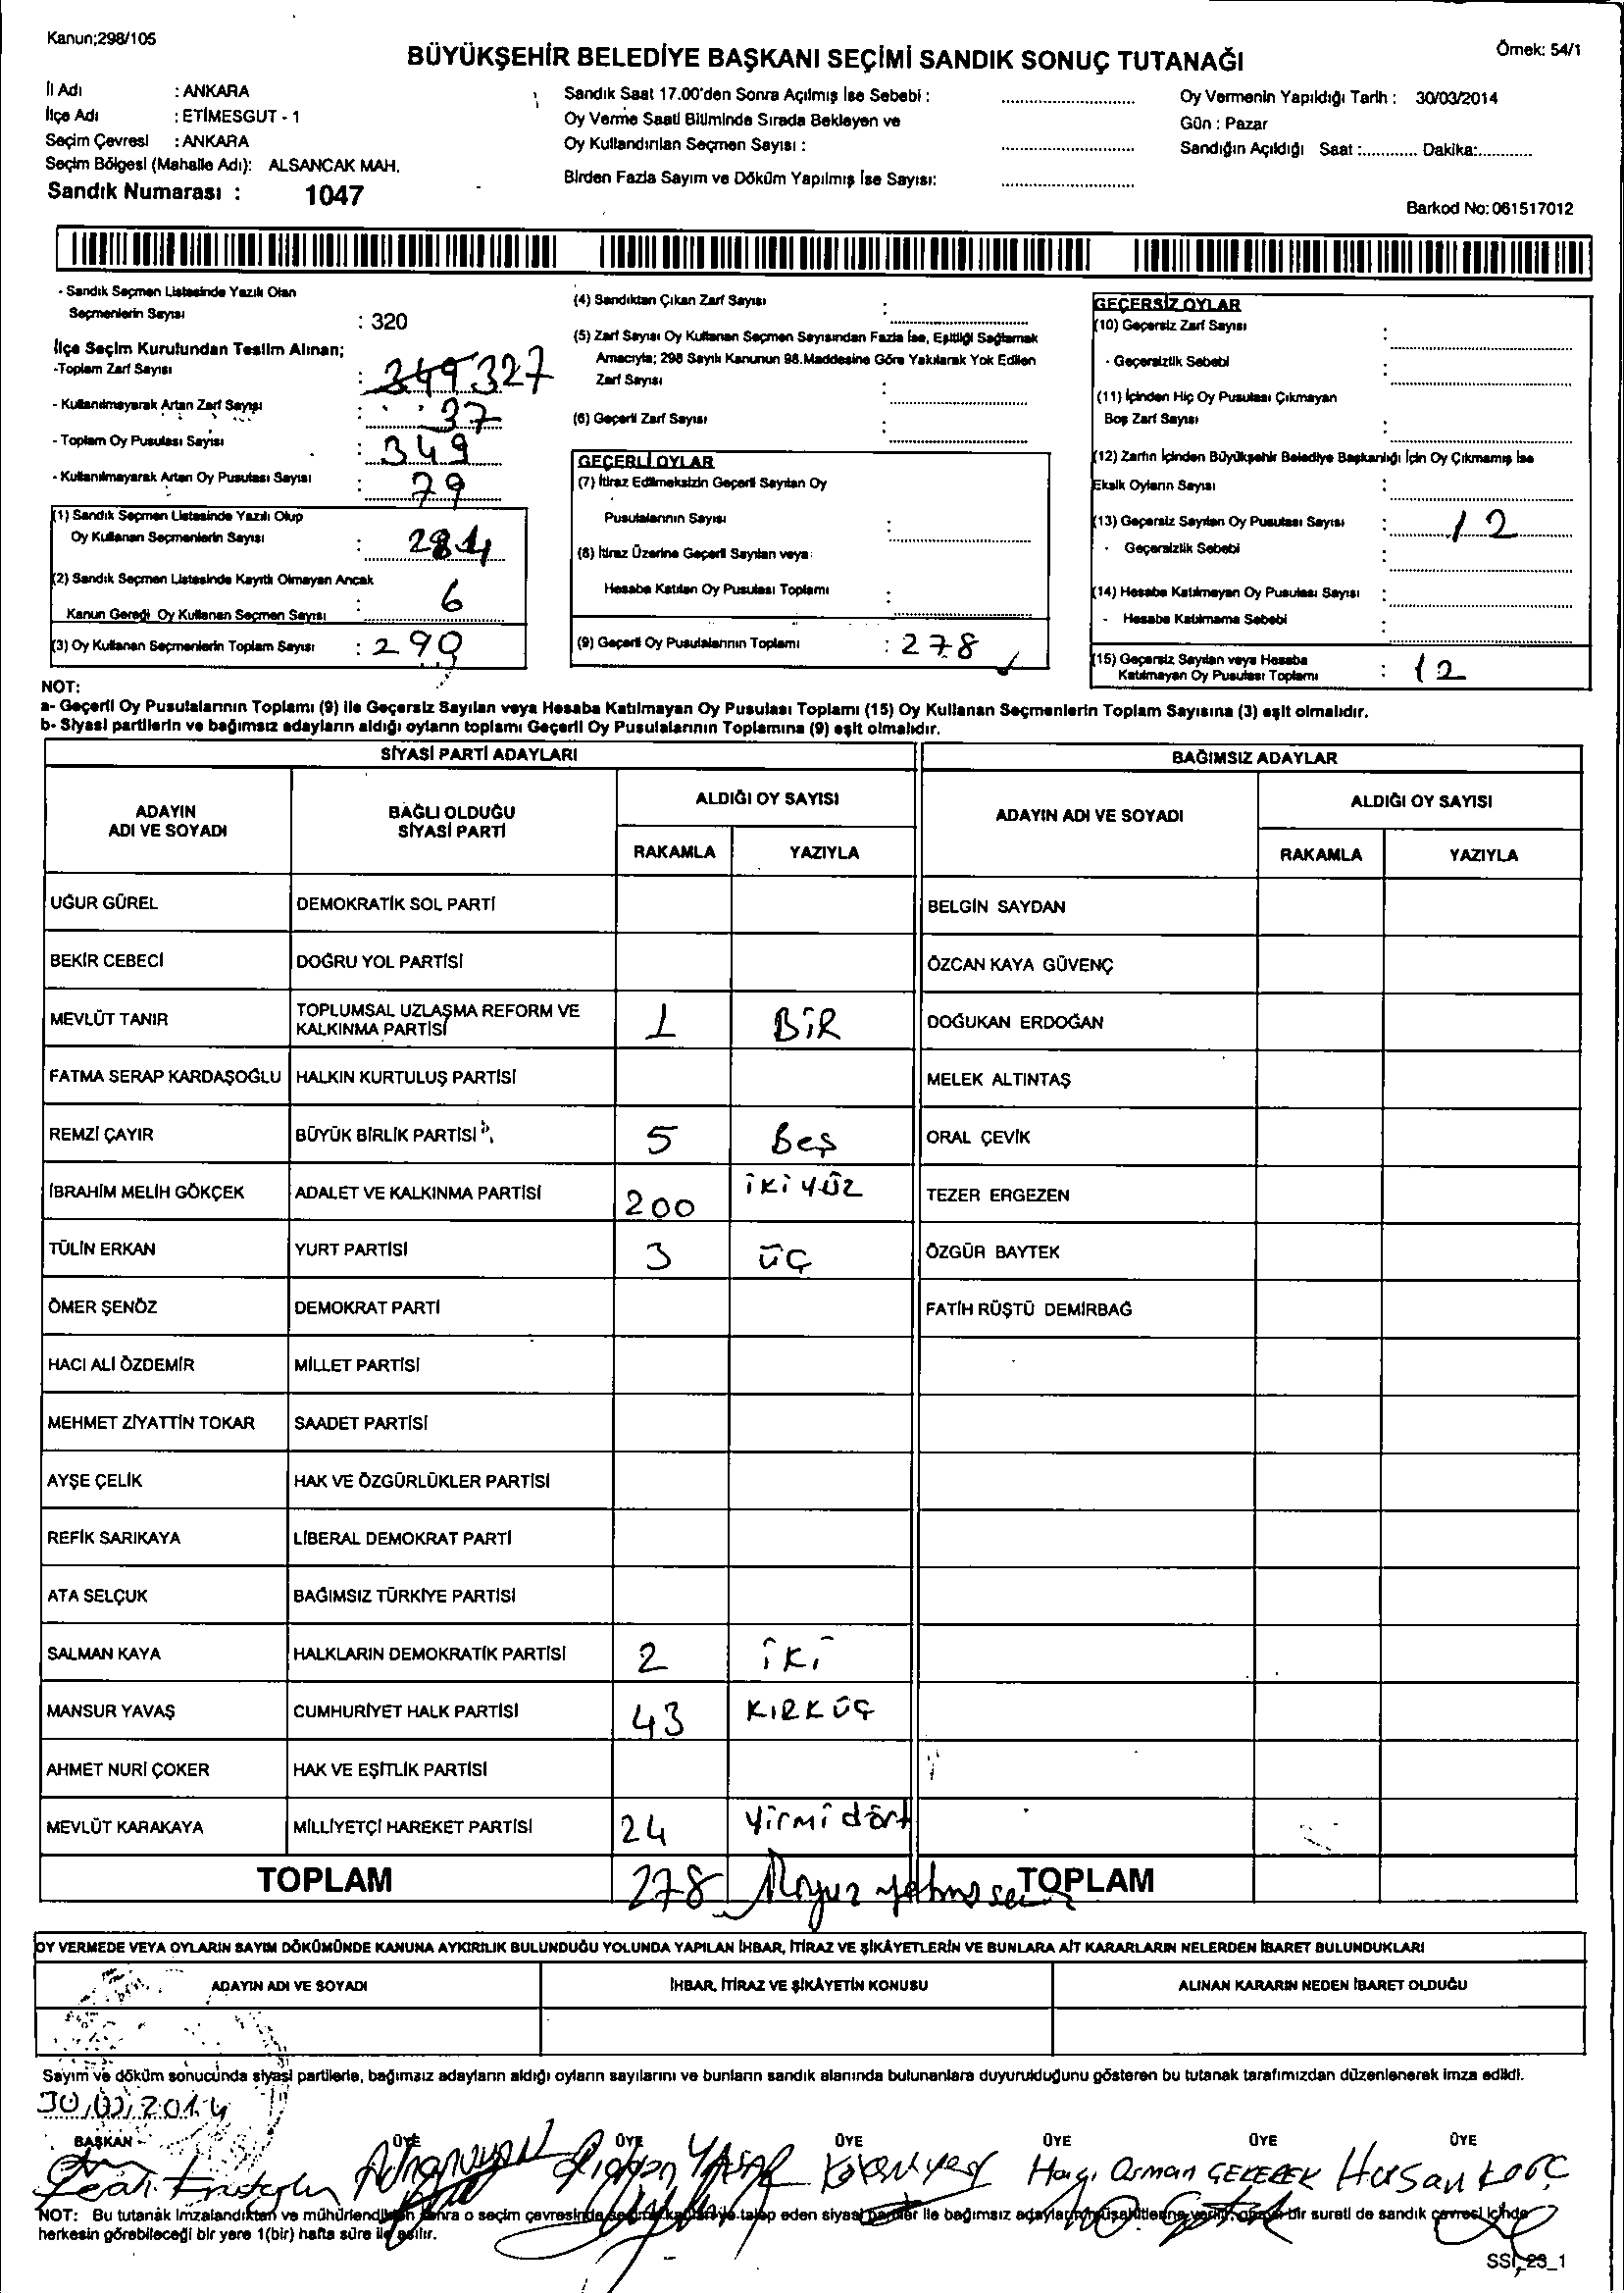 Kanun;298/105
Örnek: 54/1
BÜYÜKŞEHİR BELEDİYE BAŞKANI SEÇİMİ SANDIK SONUÇ TUTANAĞI
İl Adı : ANKARA
İlçe Adı : ETİMESGUT - 1
Seçim Çevresi : ANKARA
Seçim Bölgesi (Mahalle Adı): ALSANCAK MAH.
Sandık Numarası : 1047
Sandık Saat 17.00'den Sonra Açılmış İse Sebebi :
Oy Verme Saati Bitiminde Sırada Bekleyen ve
Oy Kullandırılan Seçmen Sayısı :
Birden Fazla Sayım ve Döküm Yapılmış İse Sayısı:
Oy Vermenin Yapıldığı Tarih : 30/03/2014
Gün : Pazar
Sandığın Açıldığı Saat :............ Dakika:............
Barkod No: 061517012
- Sandık Seçmen Listesinde Yazılı Olan
Seçmenlerin Sayısı : 320
İlçe Seçim Kurulundan Teslim Alınan;
-Toplam Zarf Sayısı : 349 327
- Kullanılmayarak Artan Zarf Sayısı : 37
- Toplam Oy Pusulası Sayısı : 349
- Kullanılmayarak Artan Oy Pusulası Sayısı : 79
(1) Sandık Seçmen Listesinde Yazılı Olup
Oy Kullanan Seçmenlerin Sayısı : 284
(2) Sandık Seçmen Listesinde Kayıtlı Olmayan Ancak
Kanun Gereği Oy Kullanan Seçmen Sayısı : 6
(3) Oy Kullanan Seçmenlerin Toplam Sayısı : 290
(4) Sandıktan Çıkan Zarf Sayısı :
(5) Zarf Sayısı Oy Kullanan Seçmen Sayısından Fazla İse, Eşitliği Sağlamak
Amacıyla; 298 Sayılı Kanunun 98.Maddesine Göre Yakılarak Yok Edilen
Zarf Sayısı :
(6) Geçerli Zarf Sayısı :
GEÇERLİ OYLAR
(7) İtiraz Edilmeksizin Geçerli Sayılan Oy
Pusulalarının Sayısı :
(8) İtiraz Üzerine Geçerli Sayılan veya
Hesaba Katılan Oy Pusulası Toplamı :
(9) Geçerli Oy Pusulalarının Toplamı : 278
GEÇERSİZ OYLAR
(10) Geçersiz Zarf Sayısı :
- Geçersizlik Sebebi :
(11) İçinden Hiç Oy Pusulası Çıkmayan
Boş Zarf Sayısı :
(12) Zarfın İçinden Büyükşehir Belediye Başkanlığı İçin Oy Çıkmamış İse
Eksik Oyların Sayısı :
(13) Geçersiz Sayılan Oy Pusulası Sayısı : 12
- Geçersizlik Sebebi :
(14) Hesaba Katılmayan Oy Pusulası Sayısı :
- Hesaba Katılmama Sebebi :
(15) Geçersiz Sayılan veya Hesaba
Katılmayan Oy Pusulası Toplamı : 12
NOT:
a- Geçerli Oy Pusulalarının Toplamı (9) ile Geçersiz Sayılan veya Hesaba Katılmayan Oy Pusulası Toplamı (15) Oy Kullanan Seçmenlerin Toplam Sayısına (3) eşit olmalıdır.
b- Siyasi partilerin ve bağımsız adayların aldığı oyların toplamı Geçerli Oy Pusulalarının Toplamına (9) eşit olmalıdır.
SİYASİ PARTİ ADAYLARI
BAĞIMSIZ ADAYLAR
ADAYIN ADI VE SOYADI
BAĞLI OLDUĞU SİYASİ PARTİ
ALDIĞI OY SAYISI
RAKAMLA YAZIYLA
ADAYIN ADI VE SOYADI
ALDIĞI OY SAYISI
RAKAMLA YAZIYLA
UĞUR GÜREL DEMOKRATİK SOL PARTİ BELGİN SAYDAN
BEKİR CEBECİ DOĞRU YOL PARTİSİ ÖZCAN KAYA GÜVENÇ
MEVLÜT TANIR TOPLUMSAL UZLAŞMA REFORM VE KALKINMA PARTİSİ 1 BİR DOĞUKAN ERDOĞAN
FATMA SERAP KARDAŞOĞLU HALKIN KURTULUŞ PARTİSİ MELEK ALTINTAŞ
REMZİ ÇAYIR BÜYÜK BİRLİK PARTİSİ 5 Beş ORAL ÇEVİK
İBRAHİM MELİH GÖKÇEK ADALET VE KALKINMA PARTİSİ 200 iKi YÜZ TEZER ERGEZEN
TÜLİN ERKAN YURT PARTİSİ 3 ÜÇ ÖZGÜR BAYTEK
ÖMER ŞENÖZ DEMOKRAT PARTİ FATİH RÜŞTÜ DEMİRBAĞ
HACI ALİ ÖZDEMİR MİLLET PARTİSİ
MEHMET ZİYATTİN TOKAR SAADET PARTİSİ
AYŞE ÇELİK HAK VE ÖZGÜRLÜKLER PARTİSİ
REFİK SARIKAYA LİBERAL DEMOKRAT PARTİ
ATA SELÇUK BAĞIMSIZ TÜRKİYE PARTİSİ
SALMAN KAYA HALKLARIN DEMOKRATİK PARTİSİ 2 iKi
MANSUR YAVAŞ CUMHURİYET HALK PARTİSİ 43 KIRK ÜÇ
AHMET NURİ ÇOKER HAK VE EŞİTLİK PARTİSİ
MEVLÜT KARAKAYA MİLLİYETÇİ HAREKET PARTİSİ 24 Yirmi dört
TOPLAM 278 TOPLAM
OY VERMEDE VEYA OYLARIN SAYIM DÖKÜMÜNDE KANUNA AYKIRILIK BULUNDUĞU YOLUNDA YAPILAN İHBAR, İTİRAZ VE ŞİKÂYETLERİN VE BUNLARA AİT KARARLARIN NELERDEN İBARET BULUNDUKLARI
ADAYIN ADI VE SOYADI İHBAR, İTİRAZ VE ŞİKÂYETİN KONUSU ALINAN KARARIN NEDEN İBARET OLDUĞU
Sayım ve döküm sonucunda siyasi partilerle, bağımsız adayların aldığı oyların sayılarını ve bunların sandık alanında bulunanlara duyurulduğunu gösteren bu tutanak tarafımızdan düzenlenerek imza edildi.
30/03/2014
BAŞKAN ÜYE ÜYE ÜYE ÜYE ÜYE ÜYE
Hacı Osman Hasan
NOT: Bu tutanak imzalandıktan ve mühürlendikten sonra o seçim çevresinde talep eden siyasi partiler ile bağımsız adayların bir sureti de sandık çevresi içinde
herkesin görebileceği bir yere 1(bir) hafta süre ile asılır.
SSİ_23_1